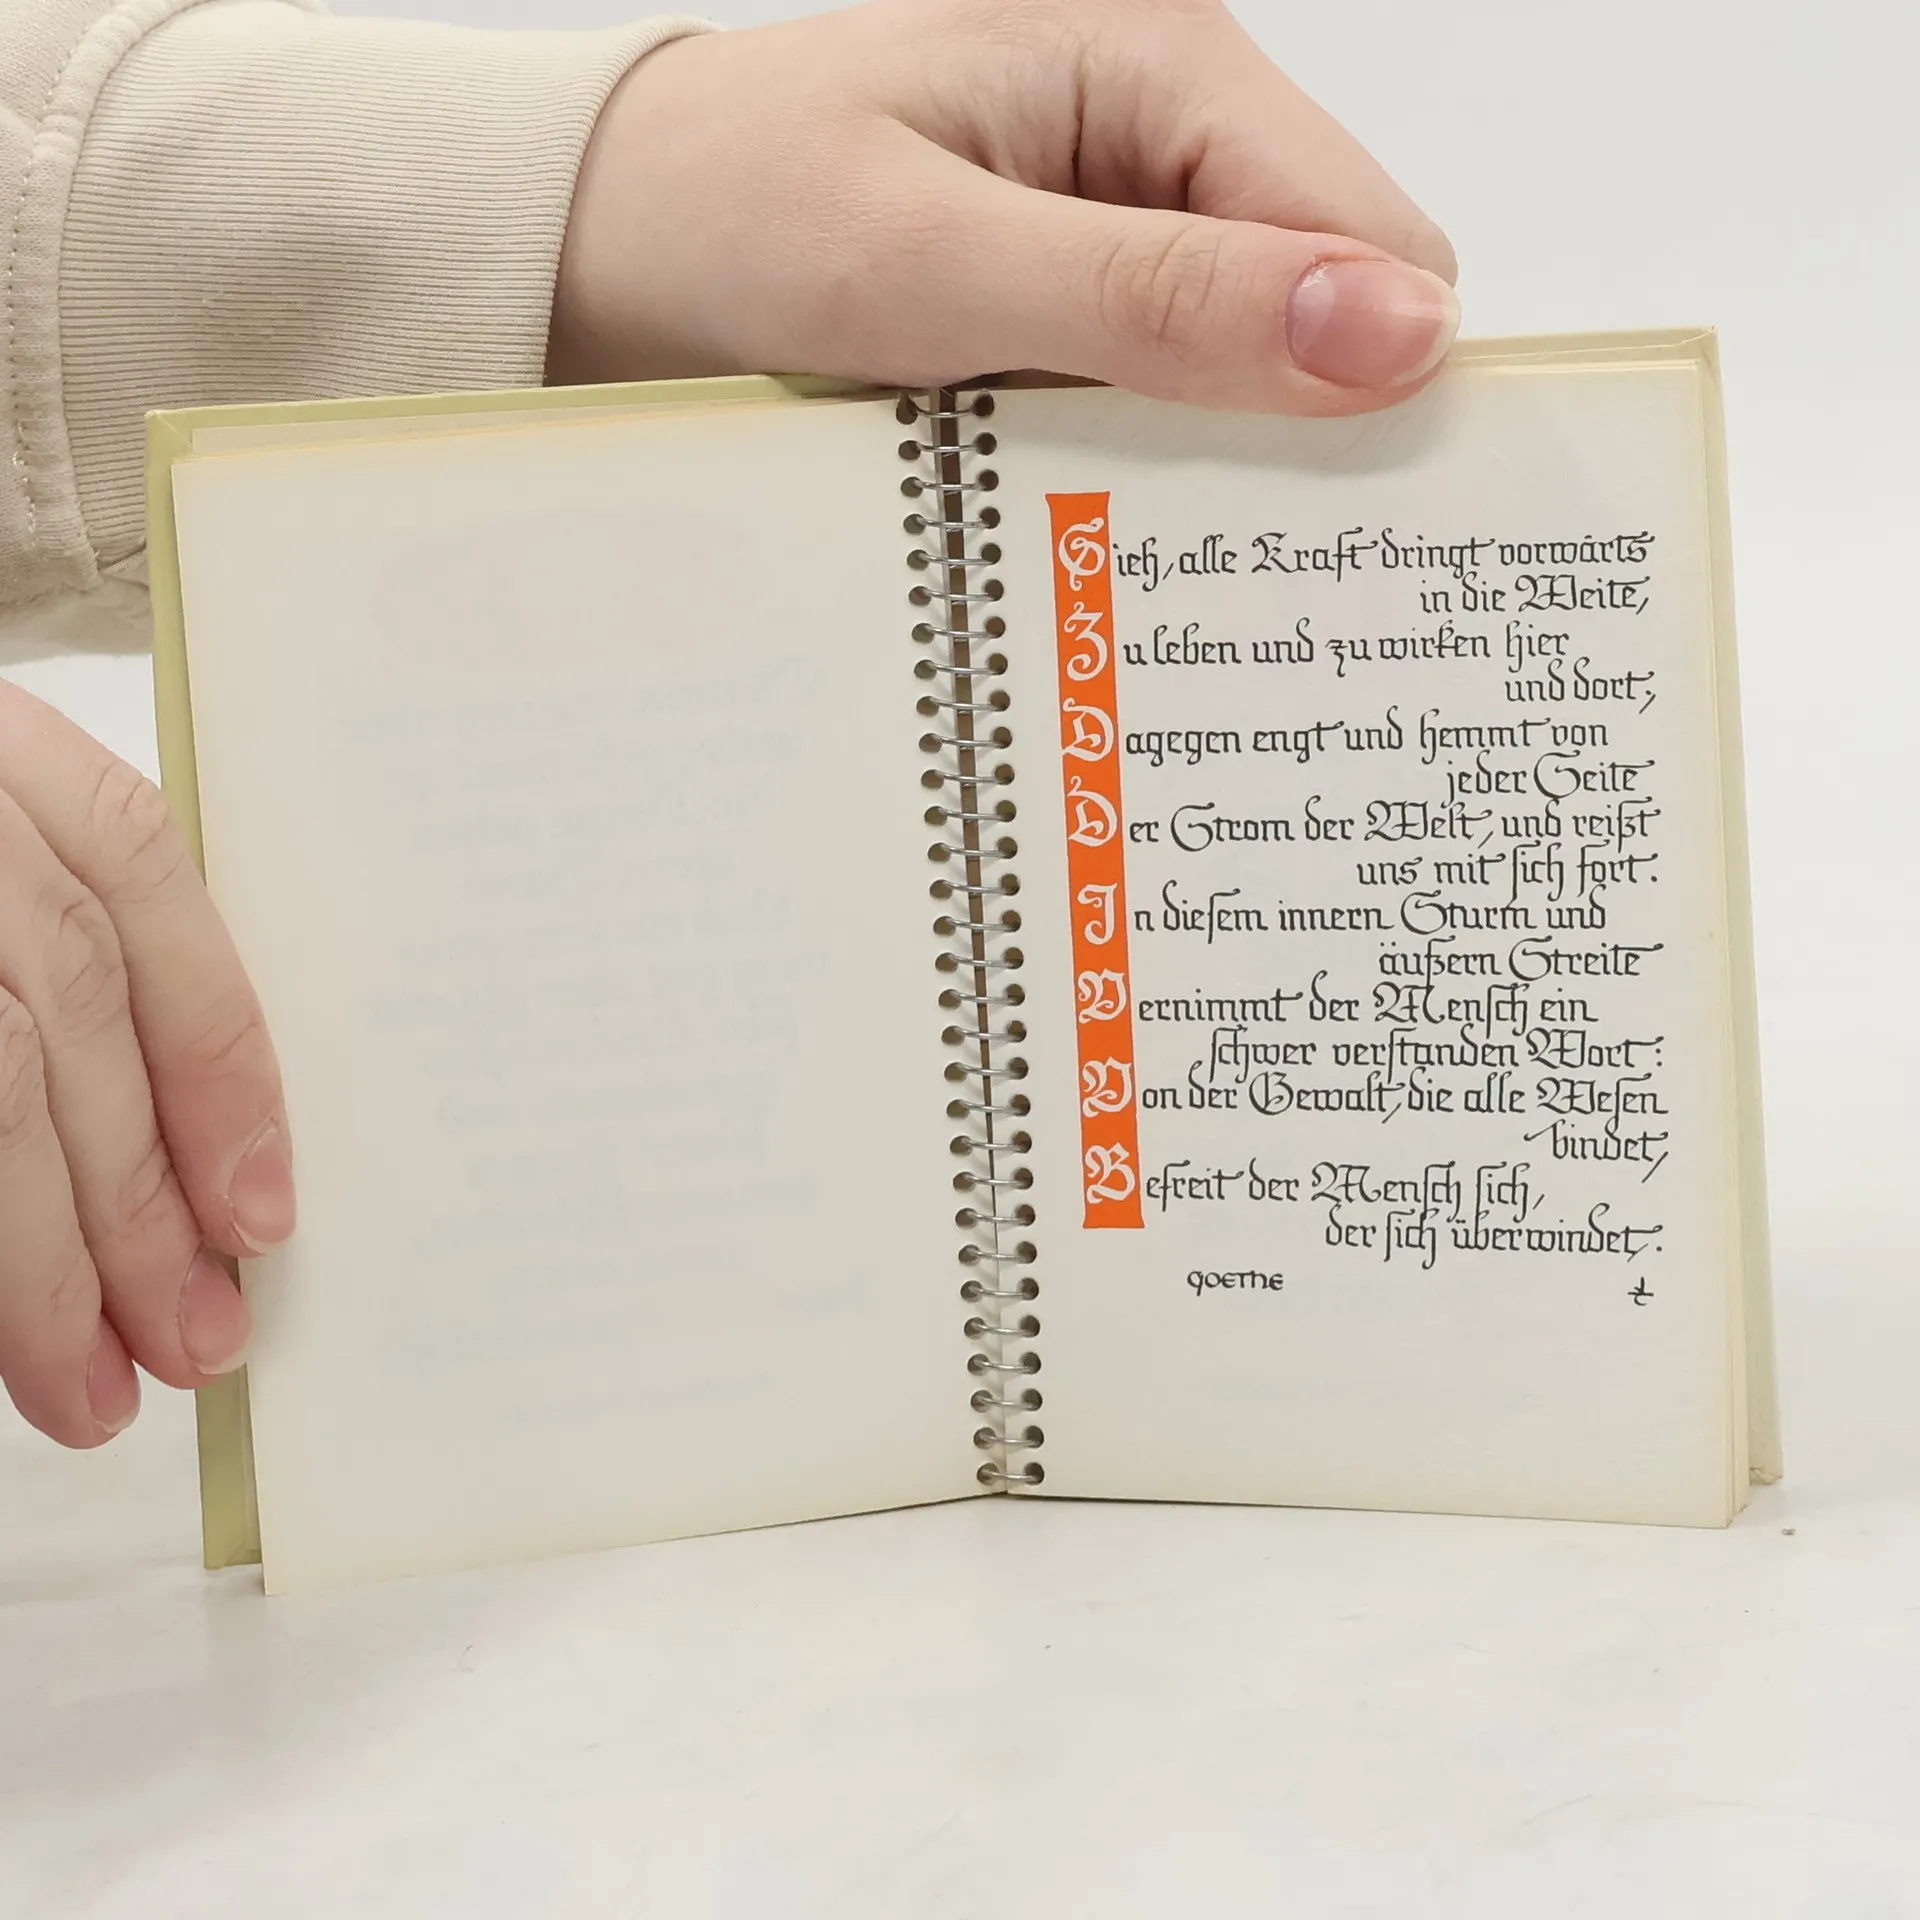 Sieh, alle Kraft dringt vorwärts
in die Weite,
Zu leben und zu wirken hier
und dort;
Dagegen engt und hemmt von
jeder Seite
Der Strom der Welt, und reißt
uns mit sich fort.
In diesem innern Sturm und
äußern Streite
Vernimmt der Mensch ein
schwer verstanden Wort:
Von der Gewalt, die alle Wesen
bindet,
Befreit der Mensch sich,
der sich überwindet.
GOETHE